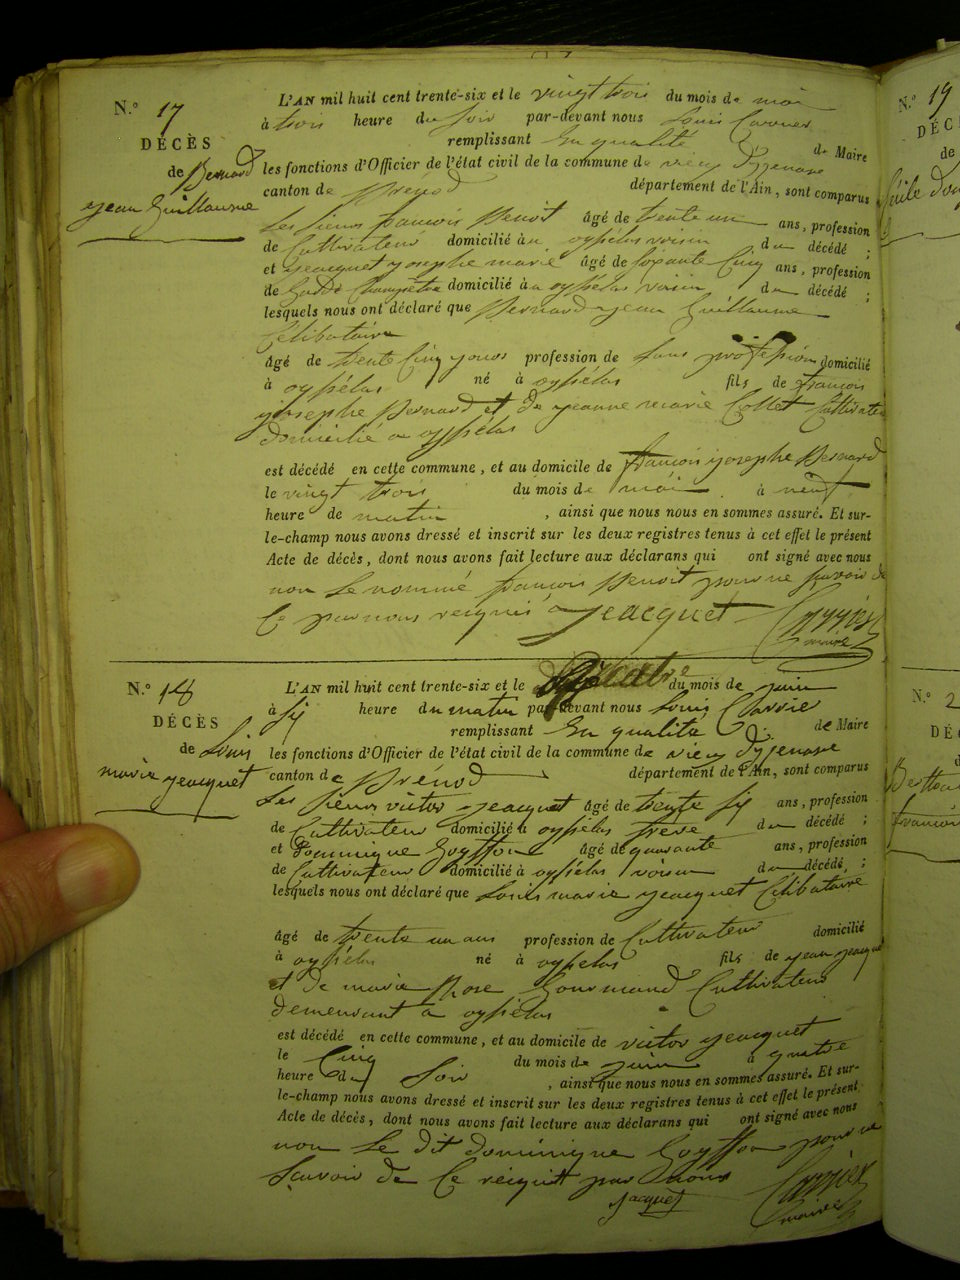 N.º 17
DÉCÈS
de Bernard
jean Guillaume
L'AN mil huit cent trente-six et le vingt trois du mois de mai
à trois heure du soir par-devant nous Louis
remplissant En qualité de Maire
les fonctions d'Officier de l'état civil de la commune de vieu d'yzenave
canton de Brénod département de l'Ain, sont comparus
Les sieurs francois Benoit âgé de trente un ans, profession
de Cultivateur domicilié à oysselas voisin du décédé ;
et jeacquet josephe marie âgé de soxante Cinq ans, profession
de Garde Champetre domicilié à oysselas voisin du décédé ;
lesquels nous ont déclaré que Bernard jean Guillaume
Célibataire
âgé de trente Cinq jours profession de Sans profession domicilié
à oysselas né à oysselas fils de francois
josephe Bernard et de jeanne marie Collet Cultivateur
domicilié a oysselas
est décédé en cette commune, et au domicile de francois josephe Bernard
le vingt trois du mois de mai à neuf
heure de matin , ainsi que nous nous en sommes assuré. Et sur-
le-champ nous avons dressé et inscrit sur les deux registres tenus à cet effet le présent
Acte de décès, dont nous avons fait lecture aux déclarans qui ont signé avec nous
non Le nommé francois Benoit pour ne savoir de
Ce par nous requis jeacquet
maire
N.º 18
DÉCÈS
de Louis
marie jeacquet
L'AN mil huit cent trente-six et le du mois de juin
à sij heure du matin par-devant nous Louis
remplissant En qualité de Maire
les fonctions d'Officier de l'état civil de la commune de vieu d'yzenave
canton de Brénod département de l'Ain, sont comparus
Les sieurs victor jeacquet âgé de trente sij ans, profession
de Cultivateur domicilié à oysselas frere du décédé ;
et Dominique Goyffon âgé de quarante ans, profession
de Cultivateur domicilié à oysselas voisin du décédé ;
lesquels nous ont déclaré que Louis marie jeacquet Célibataire
âgé de trente un ans profession de Cultivateur domicilié
à oysselas né à oysselas fils de jean jeacquet
et de marie Rose Gourmand Cultivateur
demeurant a oysselas
est décédé en cette commune, et au domicile de victor jeacquet
le Cinq du mois de juin à quatre
heure du Soir , ainsi que nous nous en sommes assuré. Et sur-
le-champ nous avons dressé et inscrit sur les deux registres tenus à cet effet le présent
Acte de décès, dont nous avons fait lecture aux déclarans qui ont signé avec nous
non Le dit dominique Goyffon pour ne
Savoir de Ce requit par nous
jacquet
maire
N.º 19
DÉC
de
N.º 2
DÉ
francois